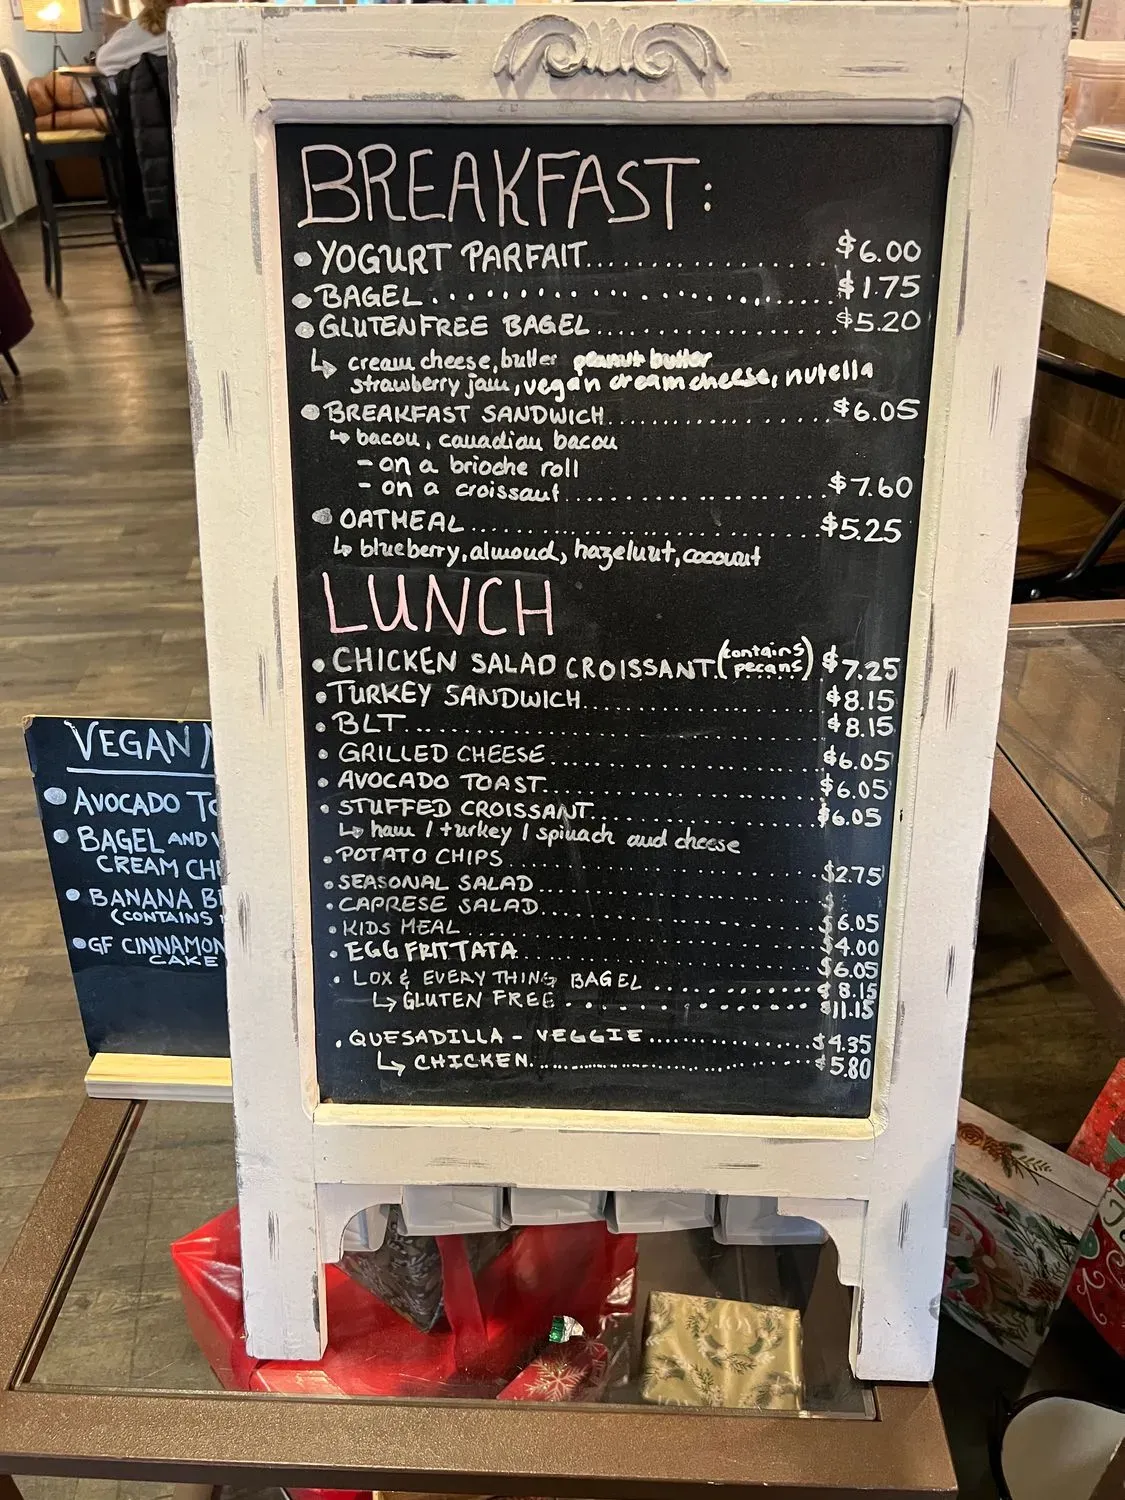 BREAKFAST:
• YOGURT PARFAIT.................. $6.00
• BAGEL.................. $1.75
• GLUTENFREE BAGEL.................. $5.20
↳ cream cheese, butter peanut butter
strawberry jam, vegan cream cheese, nutella
• BREAKFAST SANDWICH.................. $6.05
↳ bacon, canadian bacon
- on a brioche roll
- on a croissant.................. $7.60
• OATMEAL.................. $5.25
↳ blueberry, almond, hazelnut, coconut
LUNCH
• CHICKEN SALAD CROISSANT (contains pecans) $7.25
• TURKEY SANDWICH.................. $8.15
• BLT.................. $8.15
• GRILLED CHEESE.................. $6.05
• AVOCADO TOAST.................. $6.05
• STUFFED CROISSANT.................. $6.05
↳ ham / turkey / spinach and cheese
• POTATO CHIPS.................. $2.75
• SEASONAL SALAD..................
• CAPRESE SALAD.................. $6.05
• KIDS MEAL.................. $4.00
• EGG FRITTATA.................. $6.05
• LOX & EVERYTHING BAGEL.................. $8.15
↳ GLUTEN FREE.................. $11.15
• QUESADILLA - VEGGIE.................. $4.35
↳ CHICKEN.................. $5.80
VEGAN
• AVOCADO
• BAGEL AND
CREAM
• BANANA
(CONTAINS
• GF CINNAMON
CAKE